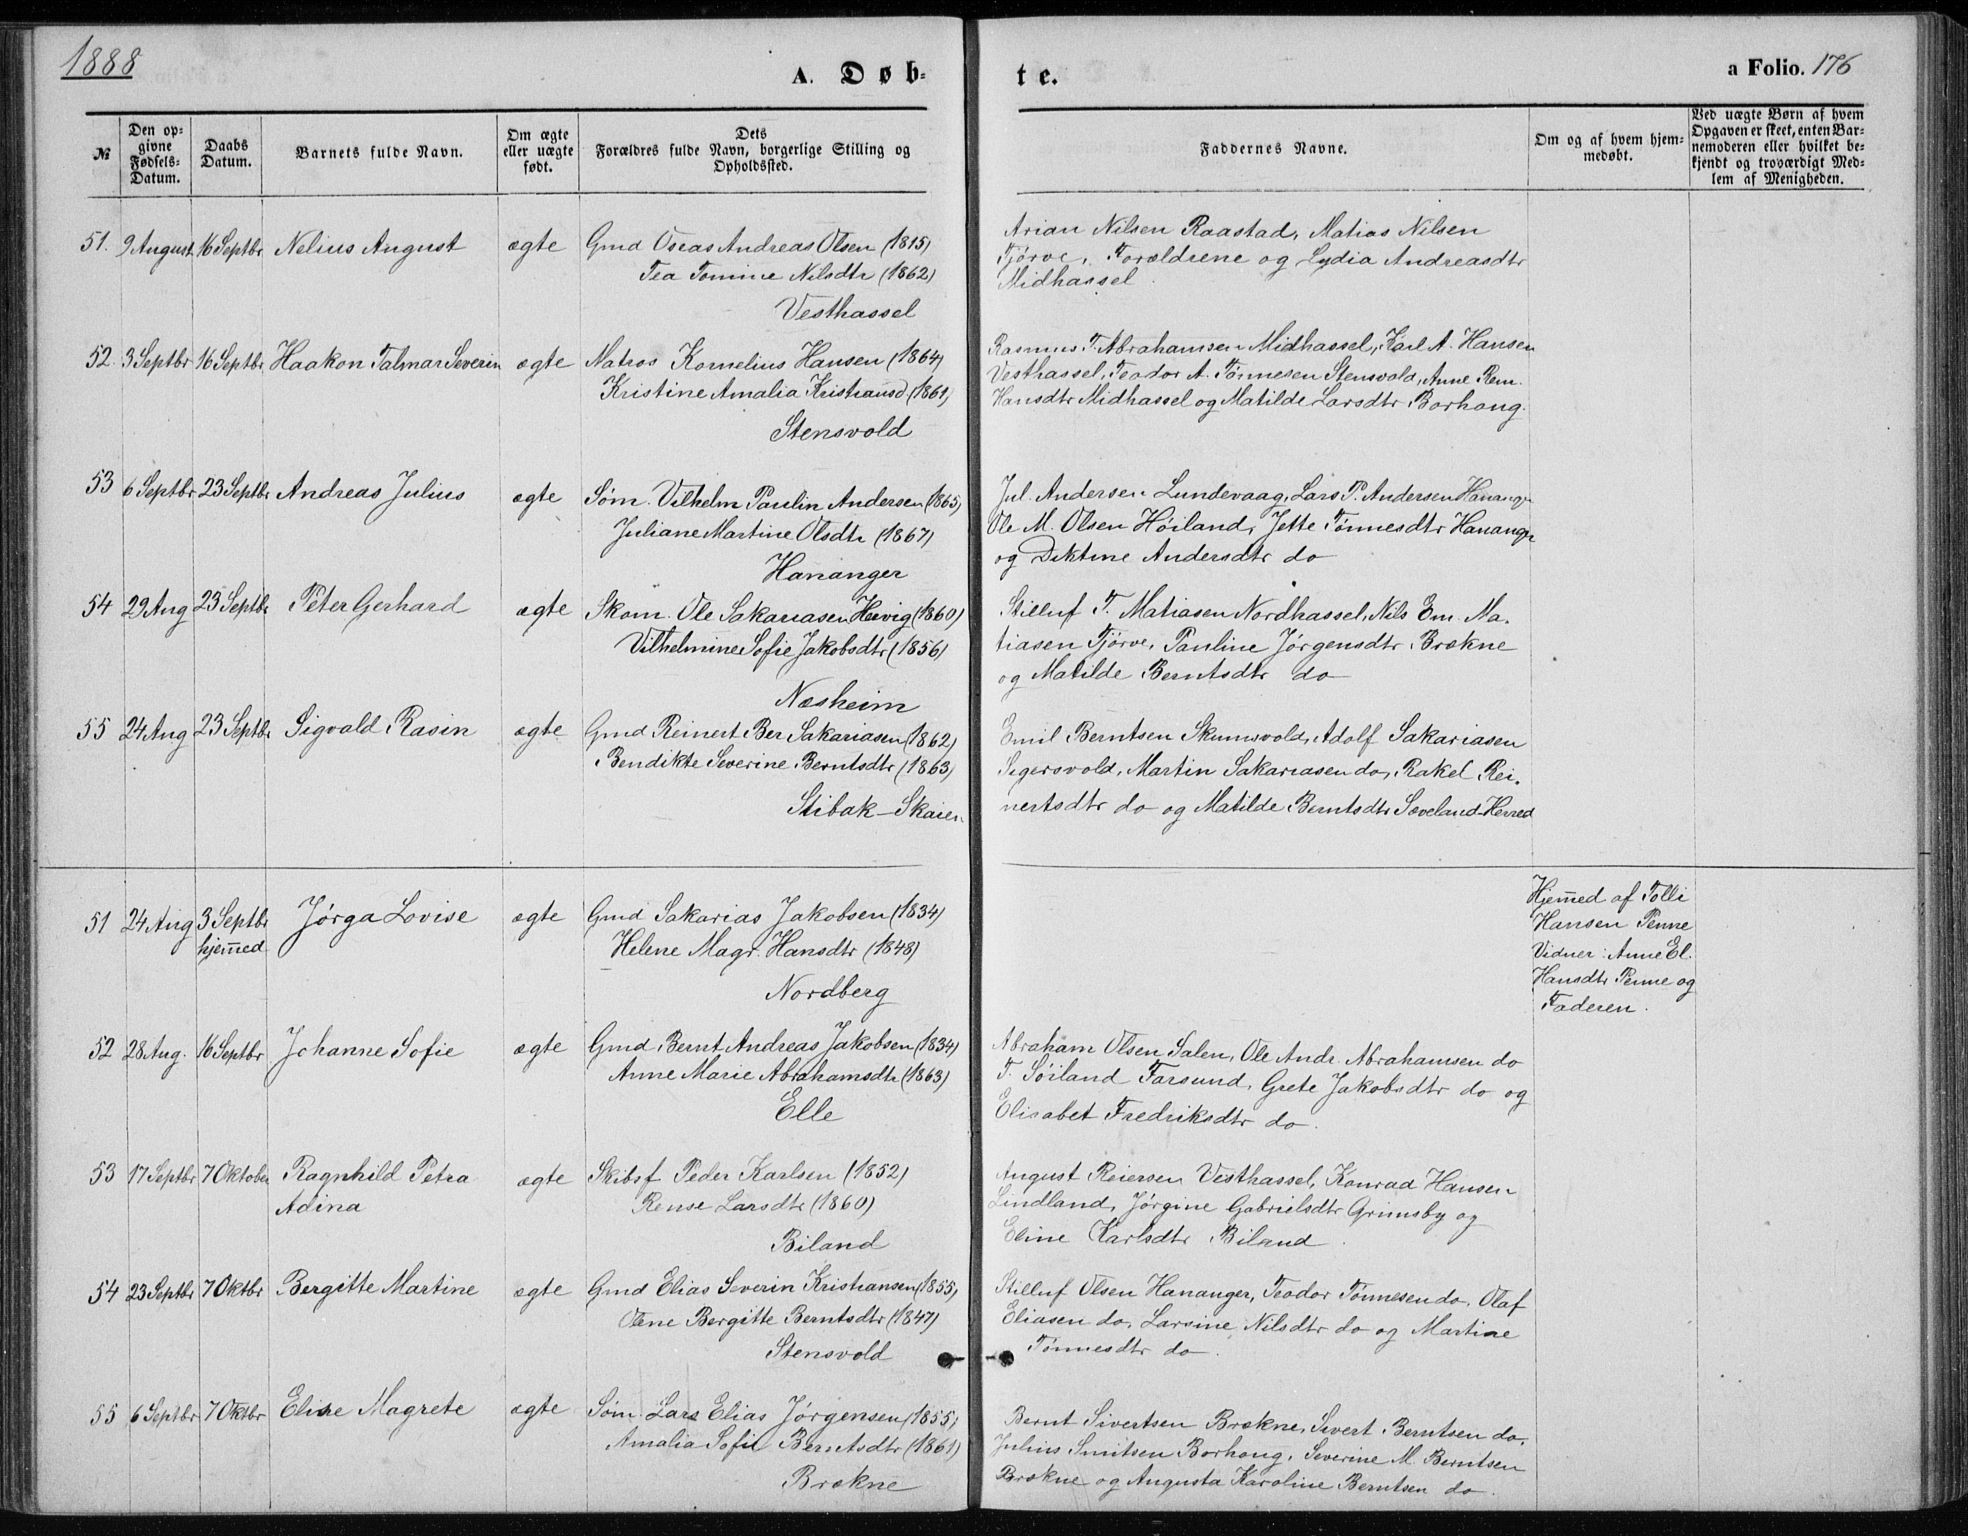 1888
A. Døb-
te.
a Folio. 176
№
Den op-
givne
Fødsels-
Datum.
Daabs
Datum.
Barnets fulde Navn.
Om ægte
eller uægte
født.
Dets
Forældres fulde Navn, borgerlige Stilling og
Opholdssted.
Faddernes Navne.
Om og af hvem hjem-
medøbt.
Ved uægte Børn af hvem
Opgaven er skeet, enten Bar-
nemoderen eller hvilket be-
kjendt og troværdigt Med-
lem af Menigheden.
51. 9 August 16 Septbr Nelius August ægte Gmd Oseas Andreas Olsen (1815)
Tea Tomine Nilsdtr (1862)
Vesthassel
Arian Nilsen Raastad, Matias Nilsen
Tjörve, Forældrene og Lydia Andreasdtr
Midhassel
52. 3 Septbr 16 Septbr Haakon Talmar Severin ægte Matros Kornelius Hansen (1864)
Kristine Amalia Kristiansd (1861)
Stensvold
Rasmus T. Abrahamsen Midhassel, Karl A. Hansen
Vesthassel, Teodor A. Tønnesen Stensvold, Anne Rem.
Hansdtr Midhassel og Matilde Larsdtr Borhoug.
53 6 Septbr 23 Septbr Andreas Julius ægte Søm. Vilhelm Paulin Andersen (1865)
Juliane Martine Olsdtr (1867)
Hananger
Jul. Andersen Lundevaag, Lars P. Andersen Hananger
Ole M. Olsen Høiland, Jette Tønnesdtr Hananger
og Diktine Andersdtr do
54 29 Aug 23 Septbr Peter Gerhard ægte Skom. Ole Sakariasen Hervig (1860)
Vilhelmine Sofie Jakobsdtr (1856)
Næsheim
Stilluf T. Matiasen Nordhassel, Nils Em. Ma-
tiasen Tjørve, Pauline Jørgensdtr Brækne
og Matilde Berntsdtr do
55 24 Aug 23 Septbr Sigvald Rasin ægte Gmd Reinert Ber Sakariasen (1862)
Bendikte Severine Berntsdtr (1863)
Stibak - Skaien
Emil Berntsen Skumsvold, Adolf Sakariasen
Sigersvold, Martin Sakariasen do, Rakel Rei-
nertsdtr do og Matilde Berntsdtr Sæveland-Herred
51 24 Aug 3 Septbr Jørga Lovise ægte Gmd Sakarias Jakobsen (1834)
hjemmed Helene Magr. Hansdtr (1848)
Nordberg
Hjemmed af Tolli
Hansen Penne
Vidner: Anne El.
Hansdtr Penne og
Faderen.
52 28 Aug. 16 Septbr Johanne Sofie ægte Gmd Bernt Andreas Jakobsen (1834)
Anne Marie Abrahamsdtr (1863)
Elle
Abraham Olsen Salen, Ole Andr. Abrahamsen do
T. Søiland Farsund, Grete Jakobsdtr do og
Elisabet Fredriksdtr do.
53 17 Septbr 7 Oktober Ragnhild Petra ægte Skibsf Peder Karlsen (1852)
Adina Rense Larsdtr (1860)
Biland
August Reiersen Vesthassel, Konrad Hansen
Lindland, Jørgine Gabrielsdtr Grimsby og
Eline Karlsdtr Biland.
54 23 Septbr 7 Oktbr Bergitte Martine ægte Gmd Elias Severin Kristiansen (1855)
Olene Bergitte Berntsdtr (1847)
Stensvold
Stilluf Olsen Hananger, Teodor Tønnesen do, Olaf
Eliasen do, Larsine Nilsdtr do og Martine
Tønnesdtr do.
55 6 Septbr 7 Oktbr Elise Magrete ægte Søm. Lars Elias Jørgensen (1855)
Amalia Sofie Berntsdtr (1861)
Brækne
Bernt Sivertsen Brækne, Sivert Berntsen do,
Julius Smitsen Borhoug, Severine M. Berntsen
Brækne og Augusta Karoline Berntsen do.